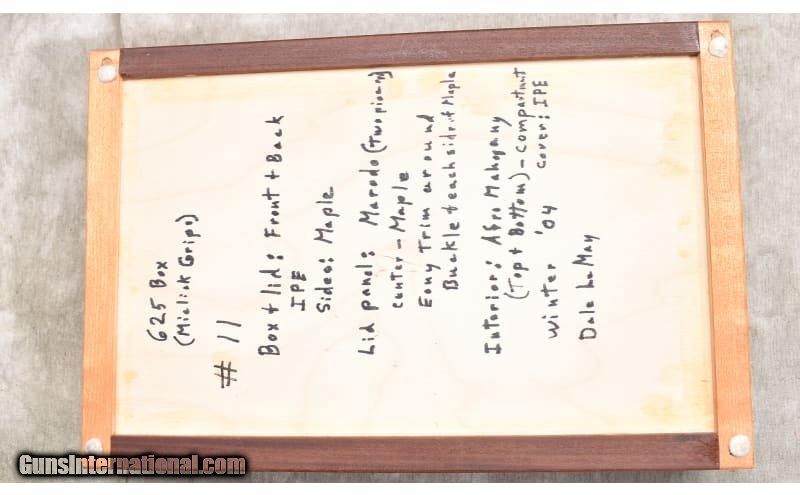 625 Box
(Miclick Grips)
# 11
Box + lid: Front + Back
IPE
Sides: Maple
Lid panel: Marado (Two pieces)
center - Maple
Eony Trim around
Buckle + each side of Maple
Interior: Afro Mahogany
(Top + Bottom) - compartment
cover: IPE
Winter '04
Dale LeMay
GunsInternational.com